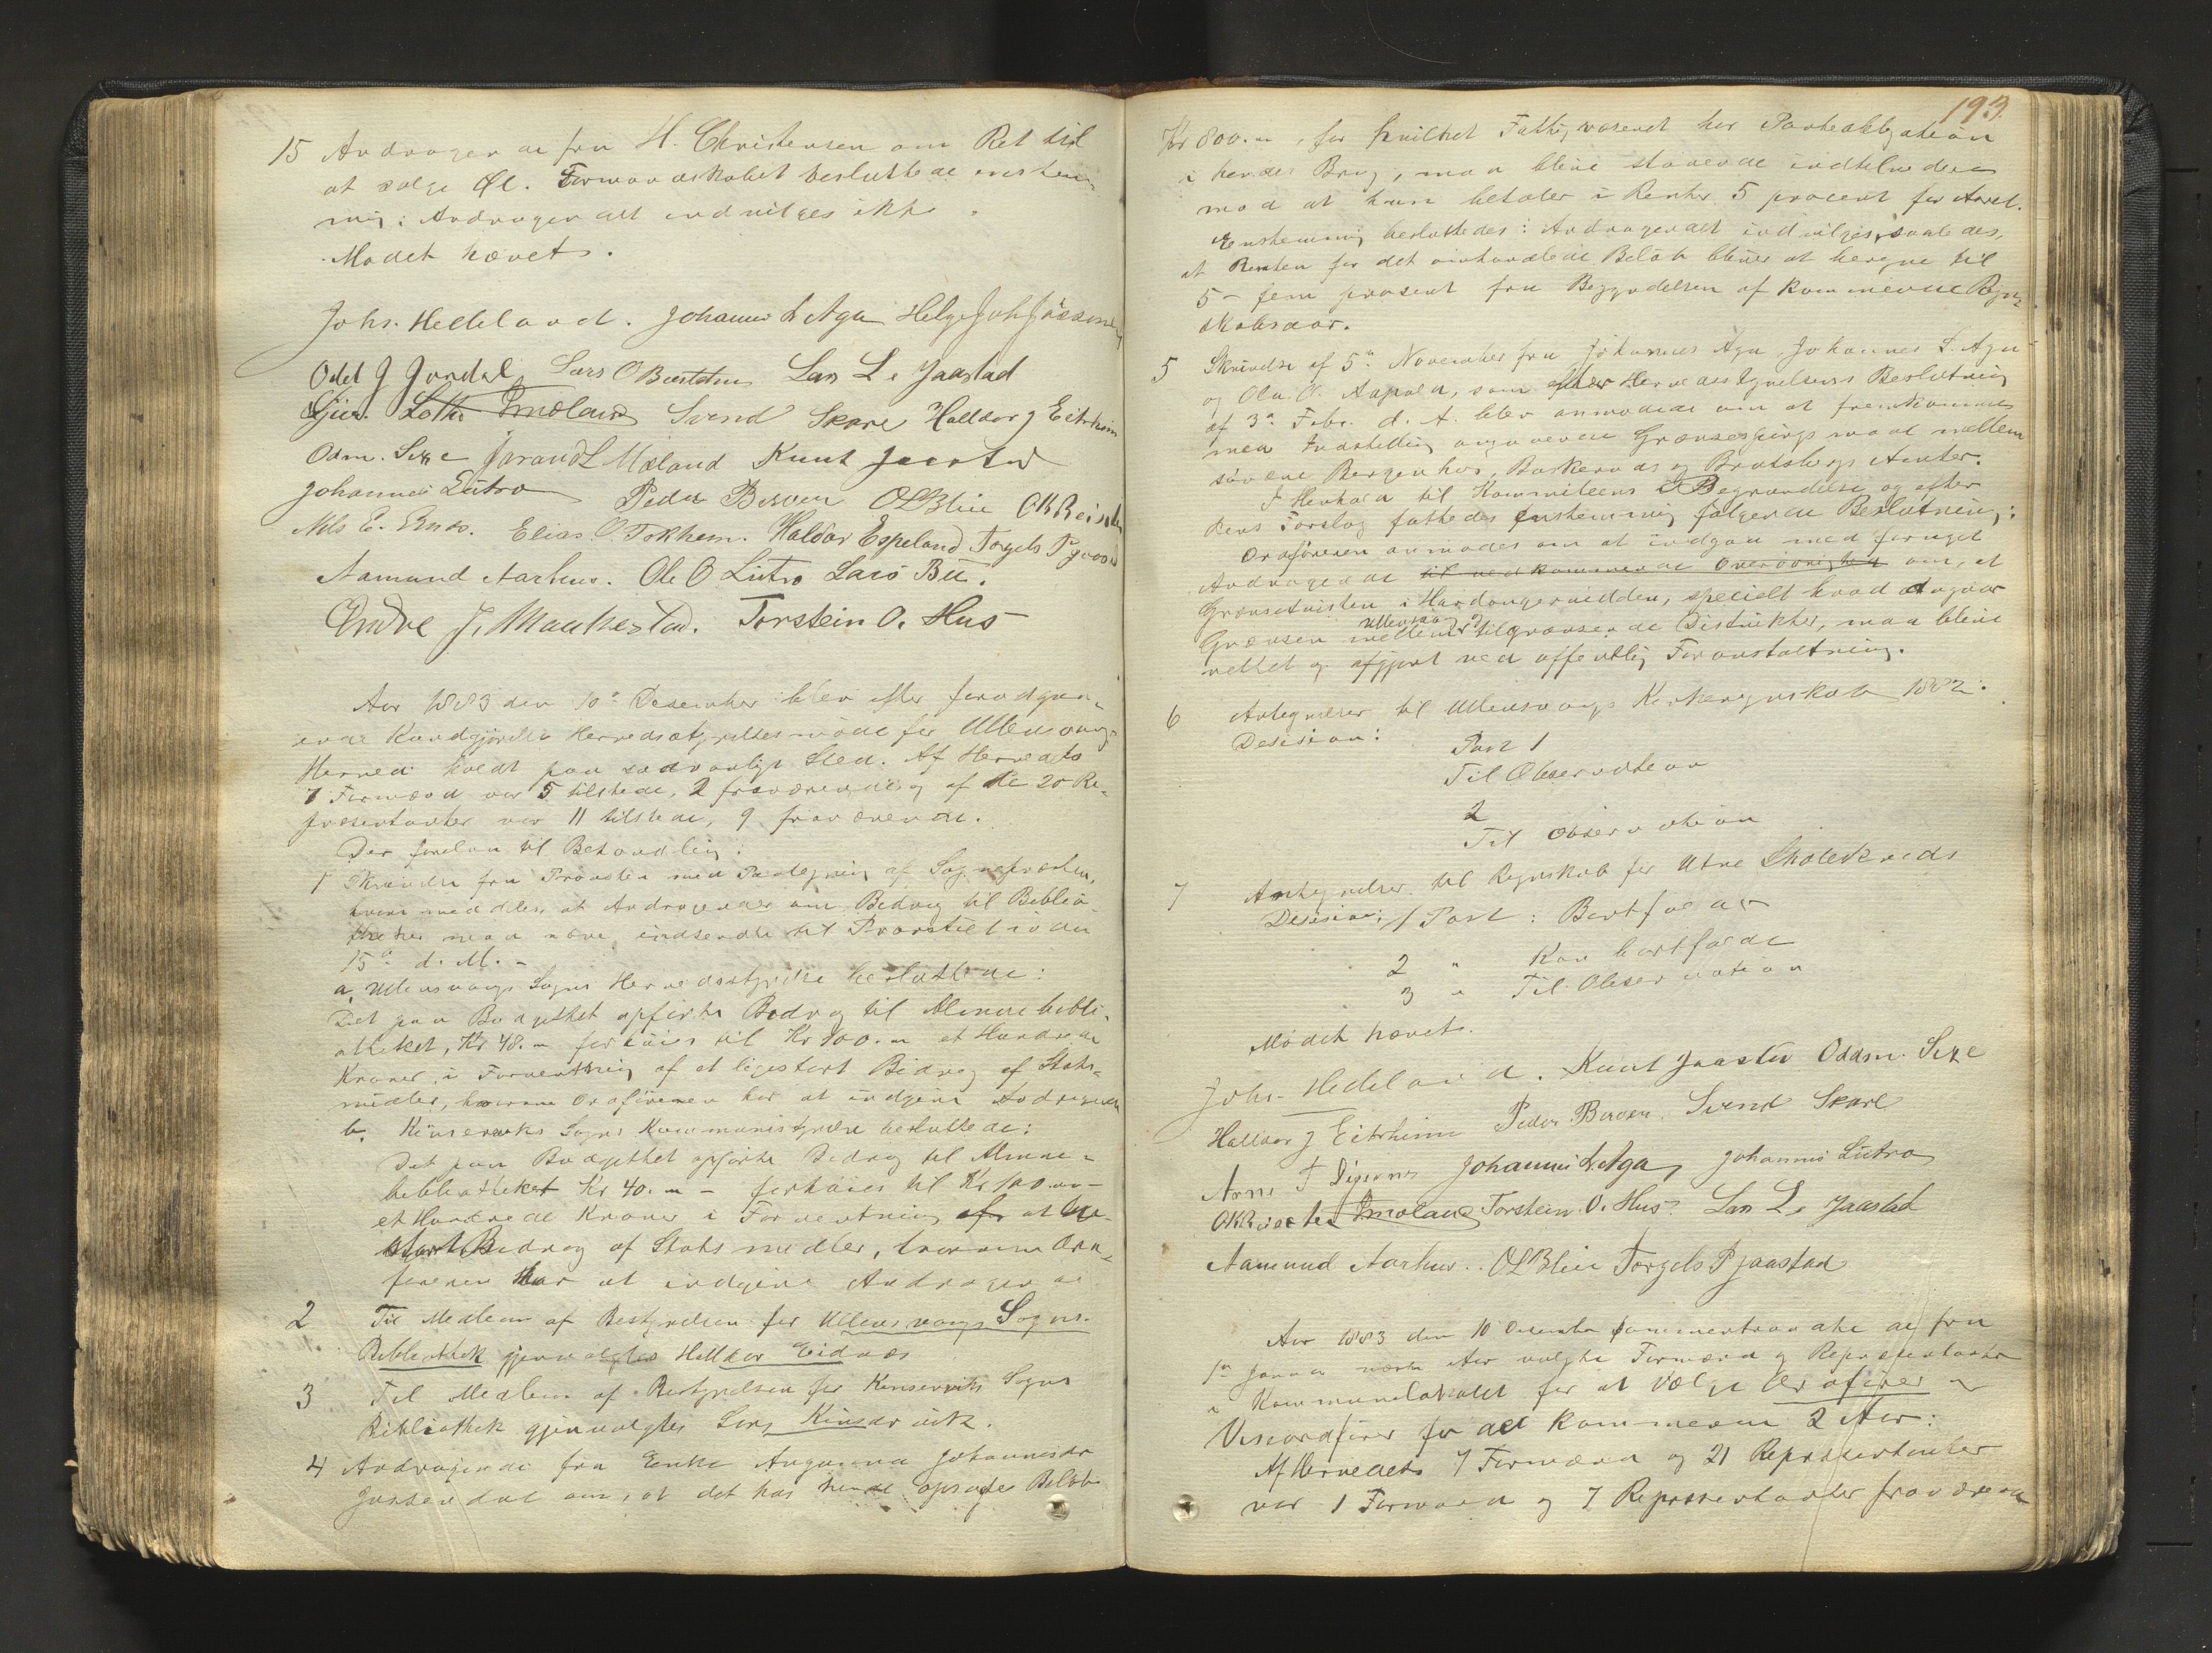 15 Andragende fra H. Christensen om Ret til
at sælge Øl. Formandskabet besluttede enstem-
mig: Andragendet indvilges ikke.
Mødet hævet.
Johs. Hedeland. Johannes L Aga Helge Joh
Odd J Jordal Lars O Lars L. Jaastad
Lothe Mæland Svend Skare Halldor J Eitrheim
Odm. Sexe Jørand L Mæland Knut Jaastad
Johannes Lutro Peder Berven O L Blie O K Reiseter
Nils E. Elias O Tokheim. Haldor Espeland Torgels P Jaastad
Aamund Aarhus. Ole O Lutro Lars Bu.
Endre J. Maakestad. Torstein O. Hus
Aar 1883 den 10de Desember blev efter foregaa-
ende Kundgjørelse Herredsstyrelsesmøde for Ullensvangs
Herred holdt paa sædvanligt Sted. Af Herredets
7 Formænd var 5 tilstede, 2 fraværende og af de 20 Re-
præsentanter var 11 tilstede, 9 fraværende.
Der forelaa til Behandling:
1 Skrivelse fra Provsten med Paategning af Sognepresten,
hvori meddeles, at Andragender om Bidrag til Biblio-
theker maa være indsendte til Provstiet inden
15de d. M. -
a, Ullensvangs Sogns Herredsstyrelse besluttede:
Det paa Budgettet opførte Bidrag til Almuebibli-
otheket, Kr 48.00 forhøies til Kr 100.00 et Hundrede
Kroner, i Forventning af et ligestort Bidrag af Stats-
midler, hvorom Ordføreren har at indgive Andragende
b, Kinserviks Sogns Kommunestyrelse besluttede:
Det paa Budgettet opførte Bidrag til Almue-
bibliotheket Kr 40.00 - forhøies til Kr 100.00 -
et Hundrede Kroner i Forventning af at lige-
stort Bidrag af Statsmidler, hvorom Ord-
føreren har at indgive Andragende
2 Til Medlem af Bestyrelsen for Ullensvangs Sogns
Bibliothek gjenvalgtes Halldor Eidnæs
3 Til Medlem af Bestyrelsen for Kinserviks Sogns
Bibliothek gjenvalgtes Lars Kinsarvik.
4 Andragende fra Enke Anganna Johannesdr
Jossendal om, at det hos hende opsagte Beløb
193.
Kr 800.00, for hvilket Fattigvæsenet har Panteobligation
i hendes Brug, maa blive staaende indtil videre
mod at hun betaler i Renter 5 procent for Aaret.
Enstemmig besluttedes: Andragendet indvilges saaledes,
at Renten for det omhandlede Beløb bliver at beregne til
5 - fem prosent fra Begyndelsen af kommende Regn-
skabsaar.
5 Skrivelse af 5te November fra Johannes Aga Johannes L. Aga
og Ola O. Aapaen, som efter Herredsstyrelsens Beslutning
af 3de Febr. d. A. blev anmodede om at fremkomme
med Indstilling angaaende Grænsespørgsmaal mellem
søndre Bergenhus, Buskeruds og Bratsbergs Amter.
I Henhold til Kommiteens Begrundelse og efter
dens Forslag fattedes enstemmig følgende Beslutning:
Ordføreren anmodes om at indgaa med fornyet
Andragende til vedkommende Overøvrighed om, at
Grænsetvisten i Hardangervidden, specielt hvad angaar
Grænsen mellem Ullensvang og tilgrænsende Distrikter, maa blive
rettet og afgjort ved offentlig Foranstaltning.
6 Antegnelser til Ullensvangs Kirkeregnskab 1882.
Desision: Post 1
Til Observation
2
Til Observation
7 Antegnelser til Regnskab for Utne Skolekreds
Desision: 1 Post: Bortfalder
2 " Kan bortfalde
3 " Til Observation
Mødet hævet.
Johs. Hedeland. Knut Jaastad Oddm. Sexe
Halldor J Eitrheim Peder Berven Svend Skare
Arne T Digranes Johannes L Aga Johannes Lutro
O K Reiseter Mæland Torstein O. Hus Lars L. Jaastad
Aamund Aarhus. O L Blie Torgels P Jaastad
Aar 1883 den 10 Desember sammentraadte de fra
1ste Januar næste Aar valgte Formænd og Repræsentanter
i Kommunelokalet for at vælge Ordfører og
Viseordfører for det kommende 2 Aar:
Af Herredets 7 Formænd og 21 Repræsentanter
var 1 Formand og 7 Repræsentanter fraværende